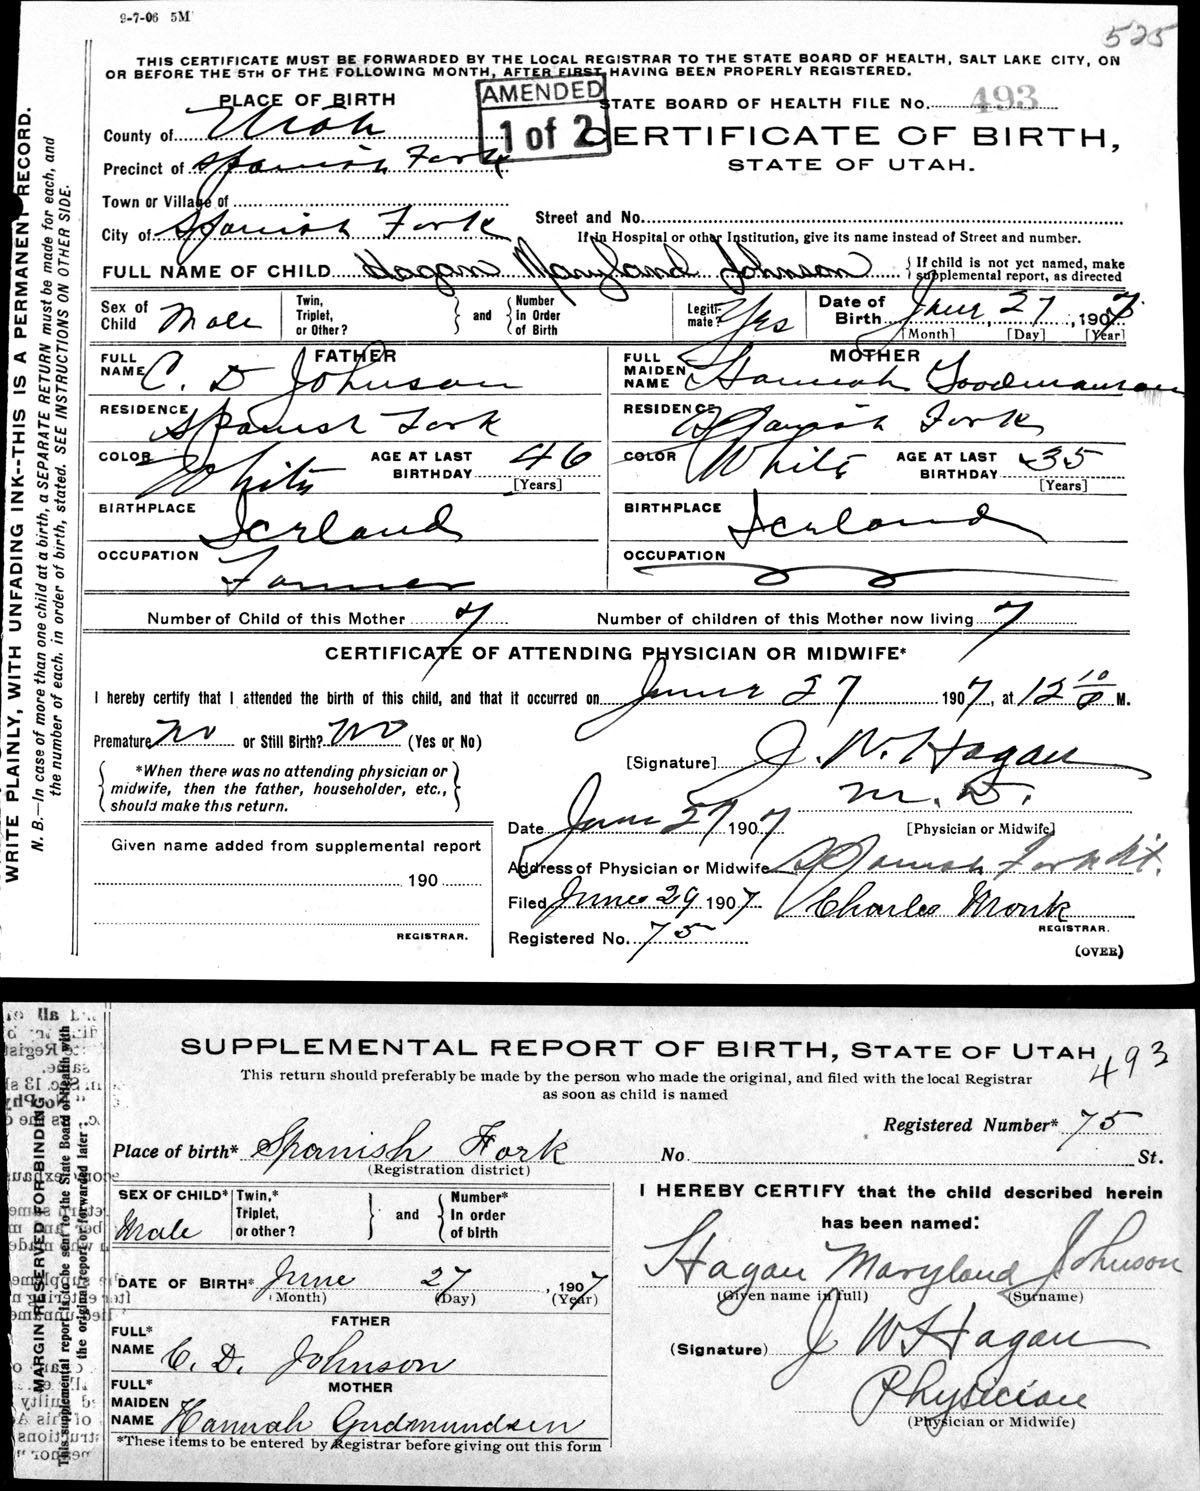 9-7-06 5M
525
THIS CERTIFICATE MUST BE FORWARDED BY THE LOCAL REGISTRAR TO THE STATE BOARD OF HEALTH, SALT LAKE CITY, ON
OR BEFORE THE 5TH OF THE FOLLOWING MONTH, AFTER FIRST HAVING BEEN PROPERLY REGISTERED.
WRITE PLAINLY, WITH UNFADING INK--THIS IS A PERMANENT RECORD.
N. B.—In case of more than one child at a birth, a SEPARATE RETURN must be made for each, and
the number of each, in order of birth, stated. SEE INSTRUCTIONS ON OTHER SIDE.
PLACE OF BIRTH
AMENDED
1 of 2
STATE BOARD OF HEALTH FILE No. 493
CERTIFICATE OF BIRTH,
STATE OF UTAH.
County of Utah
Precinct of Spanish Fork
Town or Village of
City of Spanish Fork
Street and No.
If in Hospital or other Institution, give its name instead of Street and number.
FULL NAME OF CHILD Hagan Maryland Johnson { If child is not yet named, make
supplemental report, as directed
Sex of Child Male
Twin, Triplet, or Other? } and { Number In Order of Birth
Legiti-mate? Yes
Date of Birth June 27, 1907
[Month] [Day] [Year]
FATHER
FULL NAME C. D Johnson
RESIDENCE Spanish Fork
COLOR White AGE AT LAST BIRTHDAY 46
[Years]
BIRTHPLACE Iceland
OCCUPATION Farmer
MOTHER
FULL MAIDEN NAME Hannah Goodmanson
RESIDENCE Spanish Fork
COLOR White AGE AT LAST BIRTHDAY 35
[Years]
BIRTHPLACE Iceland
OCCUPATION
Number of Child of this Mother 7 Number of children of this Mother now living 7
CERTIFICATE OF ATTENDING PHYSICIAN OR MIDWIFE*
I hereby certify that I attended the birth of this child, and that it occurred on June 27 1907, at 12 10 M.
Premature No or Still Birth? No (Yes or No)
{ *When there was no attending physician or
midwife, then the father, householder, etc.,
should make this return. }
[Signature] J. W. Hagan
M. D.
[Physician or Midwife]
Date June 27 1907
Address of Physician or Midwife Spanish Fork Ut.
Filed June 29 1907 Charles Monk
REGISTRAR.
Registered No. 75
(OVER)
Given name added from supplemental report
190
REGISTRAR.
SUPPLEMENTAL REPORT OF BIRTH, STATE OF UTAH
493
This return should preferably be made by the person who made the original, and filed with the local Registrar
as soon as child is named
MARGIN RESERVED FOR BINDING
This supplemental report is to be sent to the State Board of Health with
the original report or forwarded later
Registered Number* 75
Place of birth* Spanish Fork No. St.
(Registration district)
SEX OF CHILD* Male
Twin,* Triplet, or other? } and { Number* In order of birth
DATE OF BIRTH* June 27, 1907
(Month) (Day) (Year)
FATHER
FULL* NAME C. D. Johnson
MOTHER
FULL* MAIDEN NAME Hannah Gudmundsen
*These items to be entered by Registrar before giving out this form
I HEREBY CERTIFY that the child described herein
has been named:
Hagan Maryland Johnson
(Given name in full) (Surname)
(Signature) J W Hagan
Physician
(Physician or Midwife)